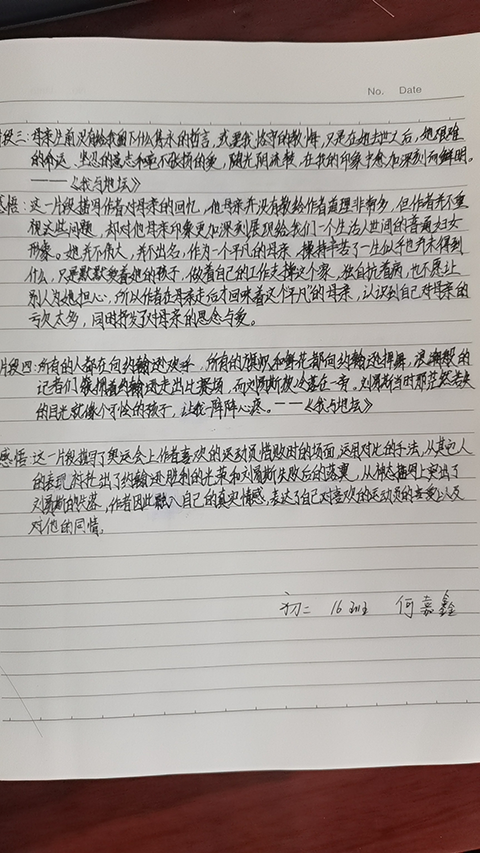 No. Date
段三：母亲生前没有给我留下什么隽永的哲言，或要我恪守的教诲，只是在她去世之后，她艰难
的命运，坚忍的意志和毫不张扬的爱，随光阴流转，在我的印象中愈加深刻和鲜明。
———《我与地坛》
感悟：这一片段描写作者对母亲的回忆，他母亲并没有教给作者道理非常多，但作者并不重
视这些问题，却对他母亲印象更加深刻展现给我们一个生活人世间的普通妇女
形象。她并不伟大，并不出名，作为一个平凡的母亲，操持辛苦了一生似乎也并未得到
什么，只是默默爱着她的孩子，做着自己的工作支撑这个家，独自抗着病，也不愿让
别人为她担心，所以作者在母亲走后才回味着这个平凡的母亲，认识到自己对母亲的
亏欠太多，同时抒发了对母亲的思念与爱。
片段四：所有的人都在向约翰逊欢呼，所有的旗帜和鲜花都向约翰逊挥舞，浪潮般的
记者们簇拥着约翰逊走出比赛场，而刘易斯被冷落在一旁。刘易斯当时那茫然若失
的目光就像个可怜的孩子，让我一阵阵心疼。———《我与地坛》
感悟：这一片段描写了奥运会上作者喜欢的运动员惜败时的场面，运用对比的手法，从其它人
的表现衬托出了约翰逊胜利的光荣和刘易斯失败后的落寞，从神态描写上突出了
刘易斯的失落，作者因此融入自己的真实情感，表达了自己对喜欢的运动员的喜爱以及
对他的同情。
初二 16班 何嘉鑫